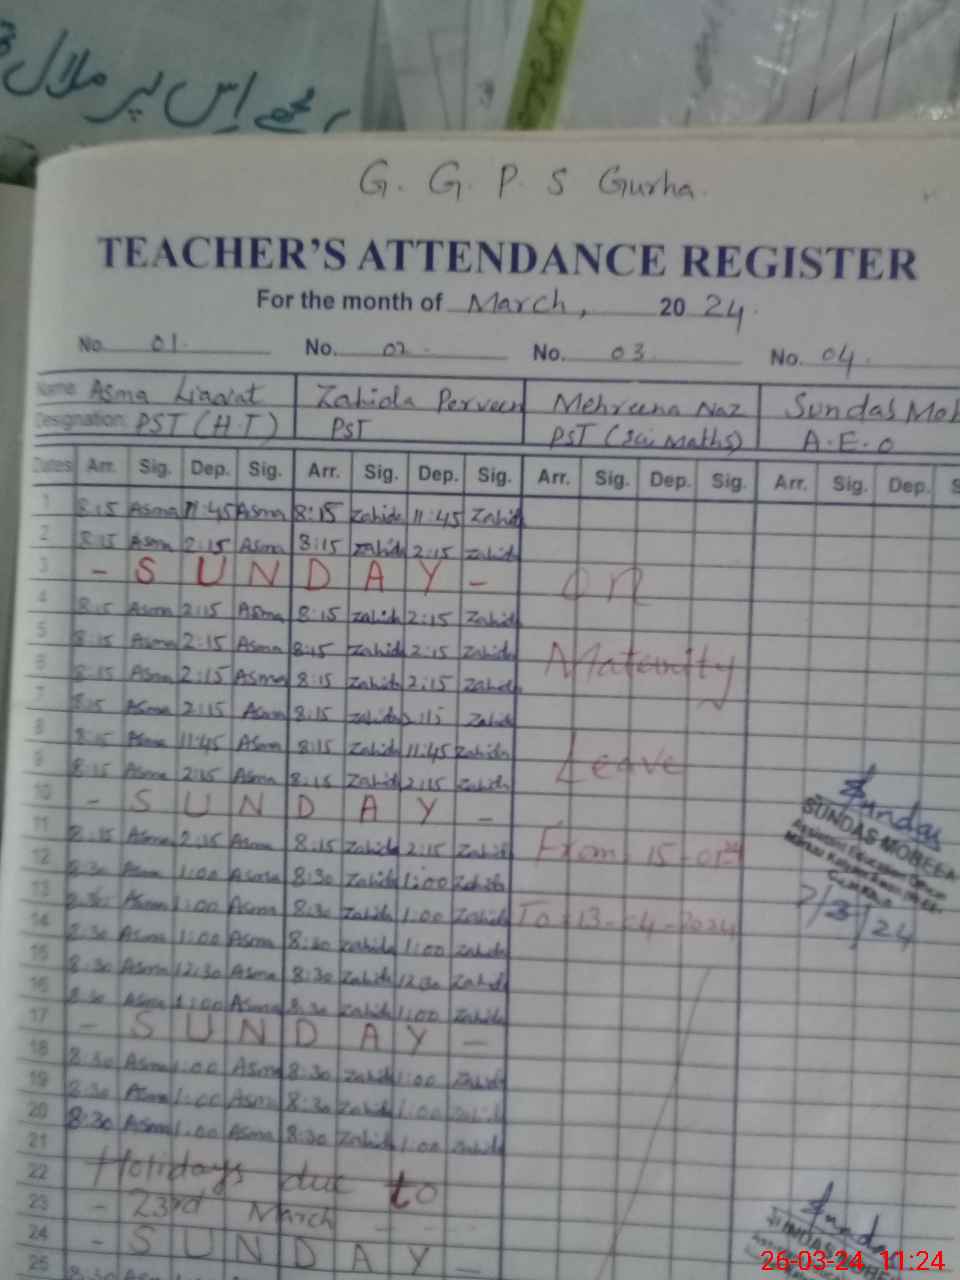 اس پر ملال
G. G. P. S Gurha.
TEACHER'S ATTENDANCE REGISTER
For the month of March, 2024.
No. 01. No. 02. No. 03. No. 04.
Name Asma Liaqat Zahida Perveen Mehreena Naz Sundas
Designation: PST (H.T) PST PST (Sci Maths) A.E.O
Dates Arr. Sig. Dep. Sig. Arr. Sig. Dep. Sig. Arr. Sig. Dep. Sig. Arr. Sig. Dep. S
1 8:15 Asma 11:45 Asma 8:15 Zahida 11:45 Zahid
2 8:15 Asma 2:15 Asma 8:15 Zahid 2:15 Zahid
3 - S U N D A Y - on
4 8:15 Asma 2:15 Asma 8:15 Zahid 2:15 Zahid
5 8:15 Asma 2:15 Asma 8:15 Zahid 2:15 Zahid Maternity
6 8:15 Asma 2:15 Asma 8:15 Zahid 2:15 Zahid
7 8:15 Asma 2:15 Asma 8:15 Zahid 2:15 Zahid
8 8:15 Asma 11:45 Asma 8:15 Zahida 11:45 Zahida Leave
9 8:15 Asma 2:15 Asma 8:15 Zahid 2:15 Zahid
10 - S U N D A Y - Sundas
11 8:15 Asma 2:15 Asma 8:15 Zahid 2:15 Zahid From 15-01-24 SUNDAS MOBEEN
12 8:30 Asma 1:00 Asma 8:30 Zahid 1:00 Zahida
13 8:30 Asma 1:00 Asma 8:30 Zahid 1:00 Zahid To 13-04-2024 7/3/24
14 8:30 Asma 1:00 Asma 8:30 Zahida 1:00 Zahid
15 8:30 Asma 12:30 Asma 8:30 Zahid 12:30 Zahid
16 8:30 Asma 1:00 Asma 8:30 Zahid 1:00 Zahid
17 - S U N D A Y -
18 8:30 Asma 1:00 Asma 8:30 Zahid 1:00 Zahid
19 8:30 Asma 1:00 Asma 8:30 Zahid 1:00 Zahid
20 8:30 Asma 1:00 Asma 8:30 Zahid 1:00 Zahid
21
22 Holidays due to
23 - 23rd March - -
24 - S U N D A Y - Sundas
25
26-03-24 11:24